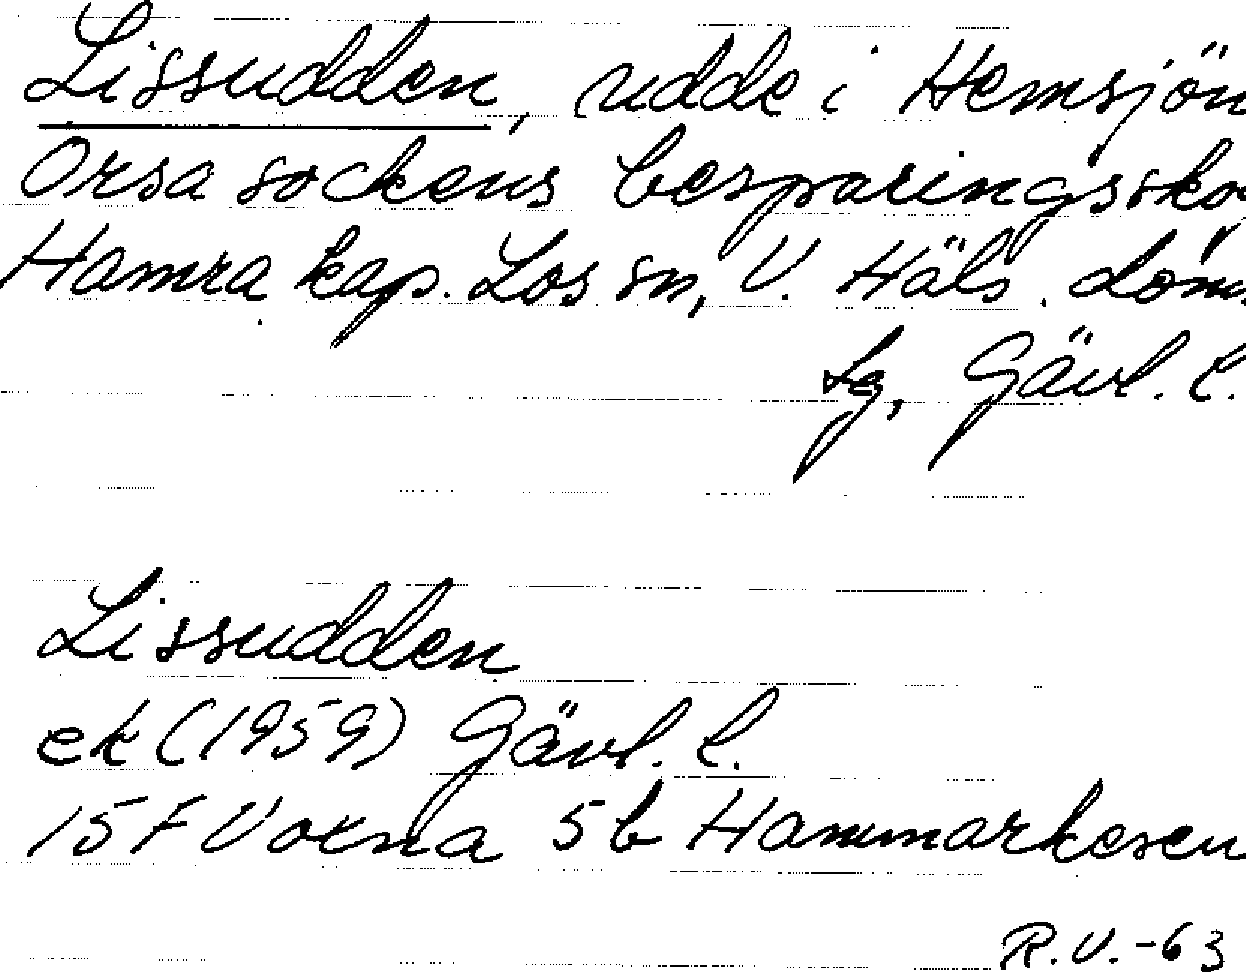 Lissudden, udde i Hemsjön
Orsa sockens besparingssko
Hamra kap. Los sn, V. Häls. doms
Lg, Gävl. l.
Lissudden
ek (1959) Gävl. l.
15 F Voxna 5b Hammarkesen
R.V.-63